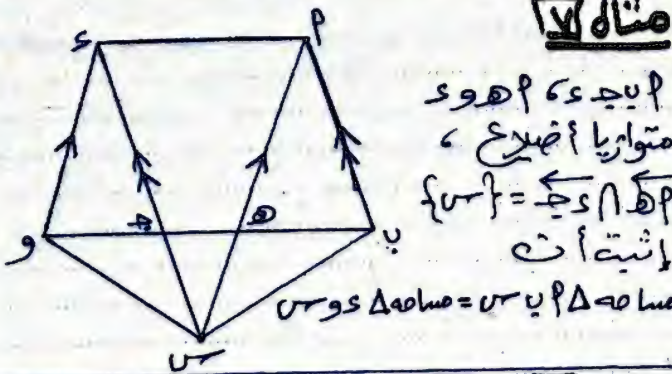 مثال ٧
أ ب جـ د ، أ هـ و د
متوازيا أضلاع ،
أهـ ∩ د جـ = {س}
إثبت أن
مساحة Δ أ ب س = مساحة Δ د و س
د
أ
جـ
هـ
و
ب
س